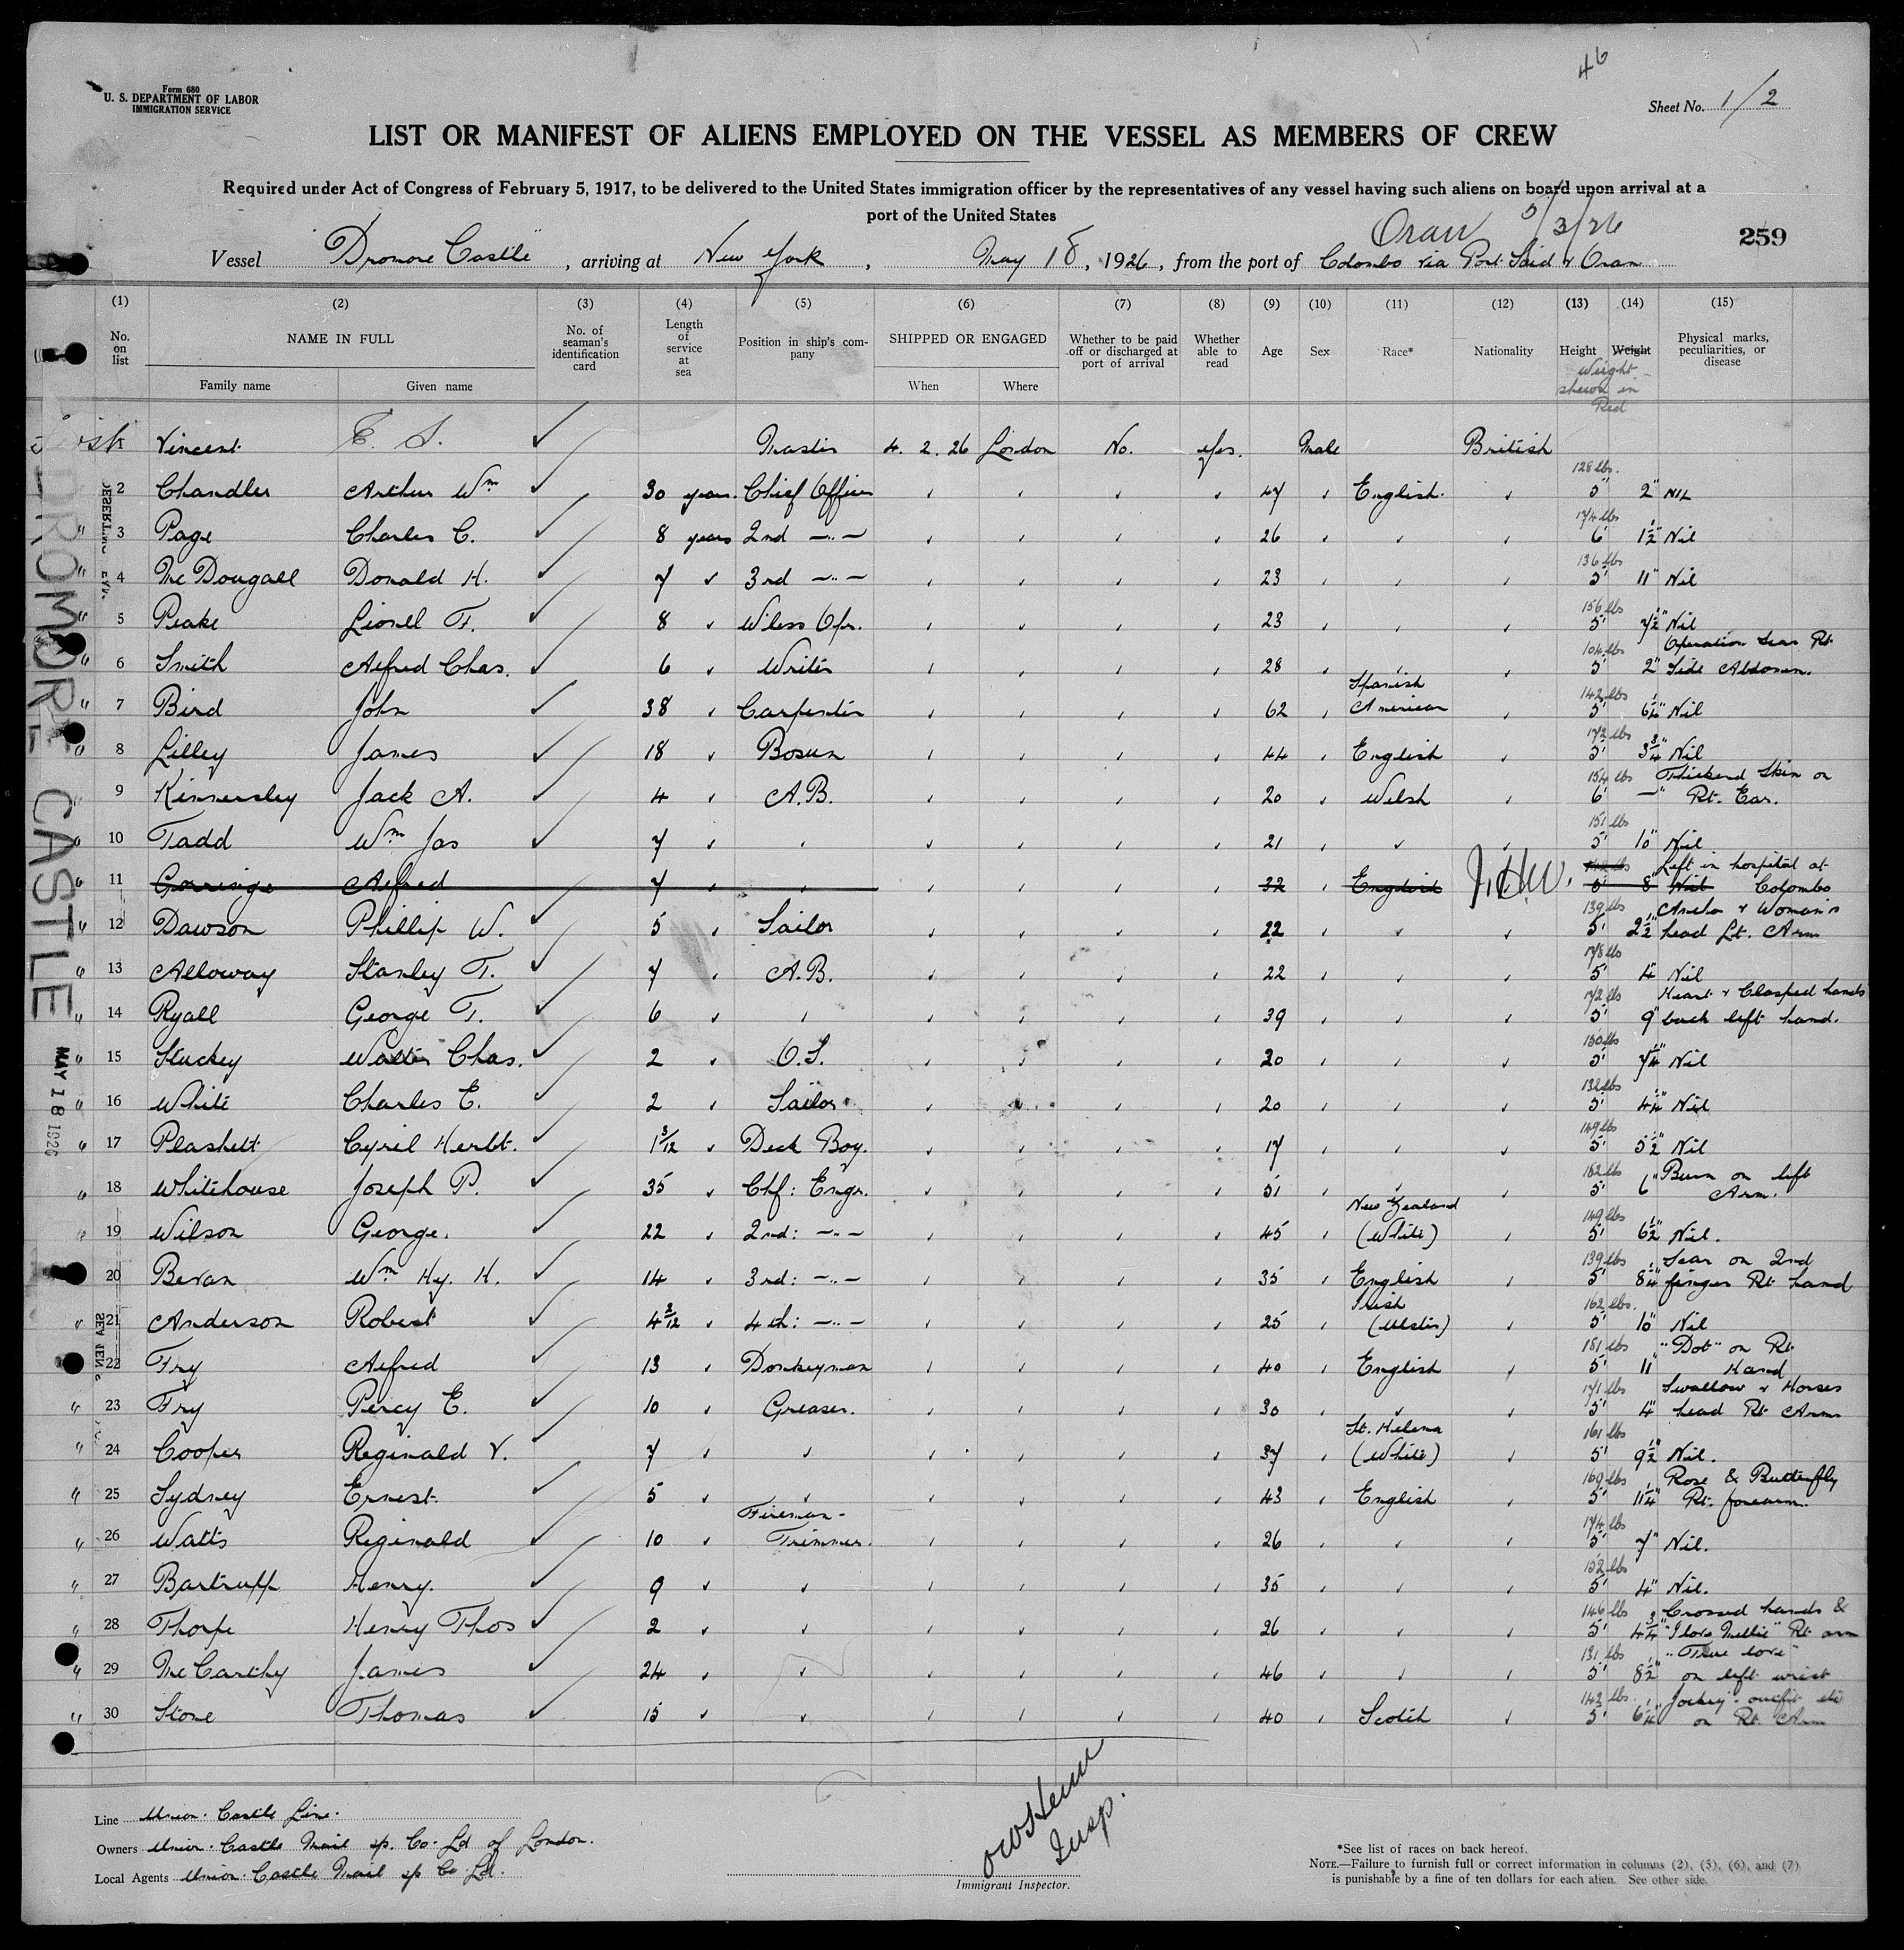 46
Form 680
U. S. DEPARTMENT OF LABOR
IMMIGRATION SERVICE
Sheet No. 1/2
LIST OR MANIFEST OF ALIENS EMPLOYED ON THE VESSEL AS MEMBERS OF CREW
Required under Act of Congress of February 5, 1917, to be delivered to the United States immigration officer by the representatives of any vessel having such aliens on board upon arrival at a
port of the United States
Oran 5/3/26
259
Vessel "Dromore Castle", arriving at New York, May 18, 1926, from the port of Colombo via Port Said & Oran
(1) (2) (3) (4) (5) (6) (7) (8) (9) (10) (11) (12) (13) (14) (15)
No. on list
NAME IN FULL
Family name Given name
No. of seaman's identification card
Length of service at sea
Position in ship's company
SHIPPED OR ENGAGED
When Where
Whether to be paid off or discharged at port of arrival
Whether able to read
Age
Sex
Race*
Nationality
Height
Weight
Weight shewn in Red
Physical marks, peculiarities, or disease
1 Vincent E. S. Master 4. 2. 26 London No. Yes. Male British
2 Chandler Arthur Wm 30 years. Chief Officer 47 English. 128 lbs. 5' 2" Nil
3 Page Charles C. 8 years 2nd -"- 26 174 lbs 6' 1½" Nil
4 McDougall Donald H. 7 3rd -"- 23 136 lbs 5' 11" Nil
5 Peake Lionel F. 8 W'less Opr. 23 156 lbs 5' 7½" Nil
6 Smith Alfred Chas. 6 Writer 28 104 lbs 5' 2" Operation Scar Rt Side Abdomen.
7 Bird John 38 Carpenter 62 Spanish American 142 lbs 5' 6½" Nil
8 Lilley James 18 Bosun 44 English 172 lbs 5' 3¾" Nil
9 Kinnersley Jack A. 4 A.B. 20 Welsh 154 lbs 6' —" Thickend Skin on Rt. Ear.
10 Tadd Wm Jas 7 21 151 lbs 5' 10" Nil
11 Gorringe Alfred 7 32 English J.H.W. 5' 8" Nil Left in hospital at Colombo
12 Dawson Phillip W. 5 Sailor 22 139 lbs 5' 2½" Anchor & Woman's head Lt. Arm
13 Alloway Stanley T. 7 A.B. 22 178 lbs 5' 4" Nil
14 Ryall George T. 6 39 172 lbs 5' 9" Heart & Clasped hands back left hand.
15 Stuckey Walter Chas. 2 O.S. 20 130 lbs 5' 7¼" Nil
16 White Charles E. 2 Sailor 20 132 lbs 5' 4¼" Nil
17 Plaskett Cyril Herbt. 1 3/12 Deck Boy. 17 149 lbs 5' 5½" Nil
18 Whitehouse Joseph P. 35 Chf: Engr. 51 182 lbs 5' 6" Burn on left Arm.
19 Wilson George. 22 2nd: -"- 45 New Zealand (White) 149 lbs 5' 6½" Nil.
20 Bevan Wm Hy. H. 14 3rd: -"- 35 English 139 lbs 5' 8¼" Scar on 2nd finger Rt hand
21 Anderson Robert 4 2/12 4th: -"- 25 Irish (Ulster) 162 lbs. 5' 10" Nil
22 Fry Alfred 13 Donkeyman 40 English 181 lbs 5' 11" "Dot" on Rt Hand
23 Fry Percy E. 10 Greaser. 30 171 lbs 5' 4" Swallow & Horses head Rt Arm
24 Cooper Reginald V. 7 37 St. Helena (White) 161 lbs 5' 9½" Nil.
25 Sydney Ernest. 5 43 English 169 lbs 5' 11¼" Rose & Butterfly Rt. forearm.
26 Watts Reginald 10 Fireman-Trimmer. 26 174 lbs 5' 7" Nil.
27 Bartrupp Henry. 9 35 152 lbs 5' 4" Nil.
28 Thorpe Henry Thos 2 26 146 lbs 5' 4¾" Crossed hands & "I love Nellie" Rt arm
29 McCarthy James 24 46 131 lbs 5' 8½" "True love" on left wrist
30 Stone Thomas 15 40 Scotch 142 lbs. 5' 6¼" "Jockey" outfit etc on Rt. Arm
DROMORE CASTLE
MAY 18 1926
Line Union-Castle Line.
Owners Union-Castle Mail sp. Co. Ld of London.
Local Agents Union-Castle Mail sp Co Ld.
Insp.
Immigrant Inspector.
*See list of races on back hereof.
NOTE.—Failure to furnish full or correct information in columns (2), (5), (6), and (7)
is punishable by a fine of ten dollars for each alien. See other side.